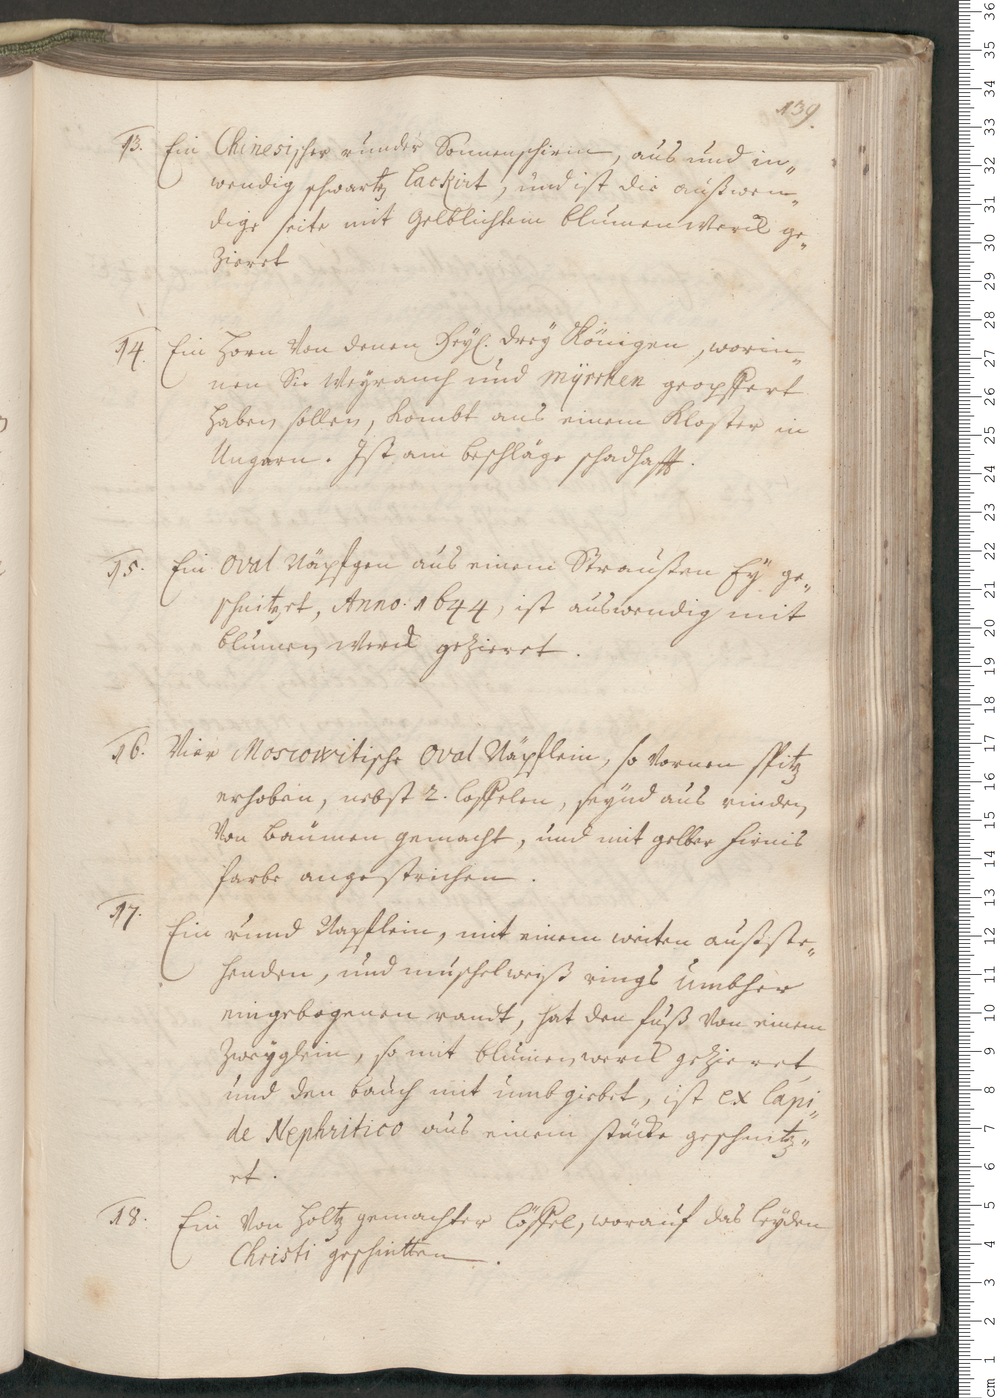 139.
13. Ein Chinesischer runder Sonnenschirm, aus und in„
wendig schwartz lackirt, und ist die außwen„
dige seite mit gelblichtem blumen Werck ge„
zieret
14. Ein Horn Von denen Heyl. drey Königen, worin„
nen Sie Weyrauch und Myrrhen geopffert
haben sollen, kombt aus einem Kloster in
Ungarn. Ist am beschläge schadhafft.
15. Ein Oval Näpfgen aus einem Straußen Ey ge„
schnitzet, Anno: 1644, ist auswendig mit
blumen Werck gezieret.
16. Vier Moscowitische Oval Näpflein, so Vornen spitz
erhoben, nebst 2. loffelen, seynd aus rinden
Von baumen gemacht, und mit gelber firnis
farbe angestrichen.
17. Ein rund Napflein, mit einem weiten außste„
henden, und muschelweiß rings umbher
eingebogenen randt, hat den fuß Von einem
Zweyglein, so mit blumenwerck gezieret
und den bauch mit umbgiebet, ist ex lapi„
de Nephritico aus einem stücke geschnitz„
et.
18. Ein Von Holtz gemachter löffel, worauf das leyden
Christi geschnitten.
36
35
34
33
32
31
30
29
28
27
26
25
24
23
22
21
20
19
18
17
16
15
14
13
12
11
10
9
8
7
6
5
4
3
2
1
cm